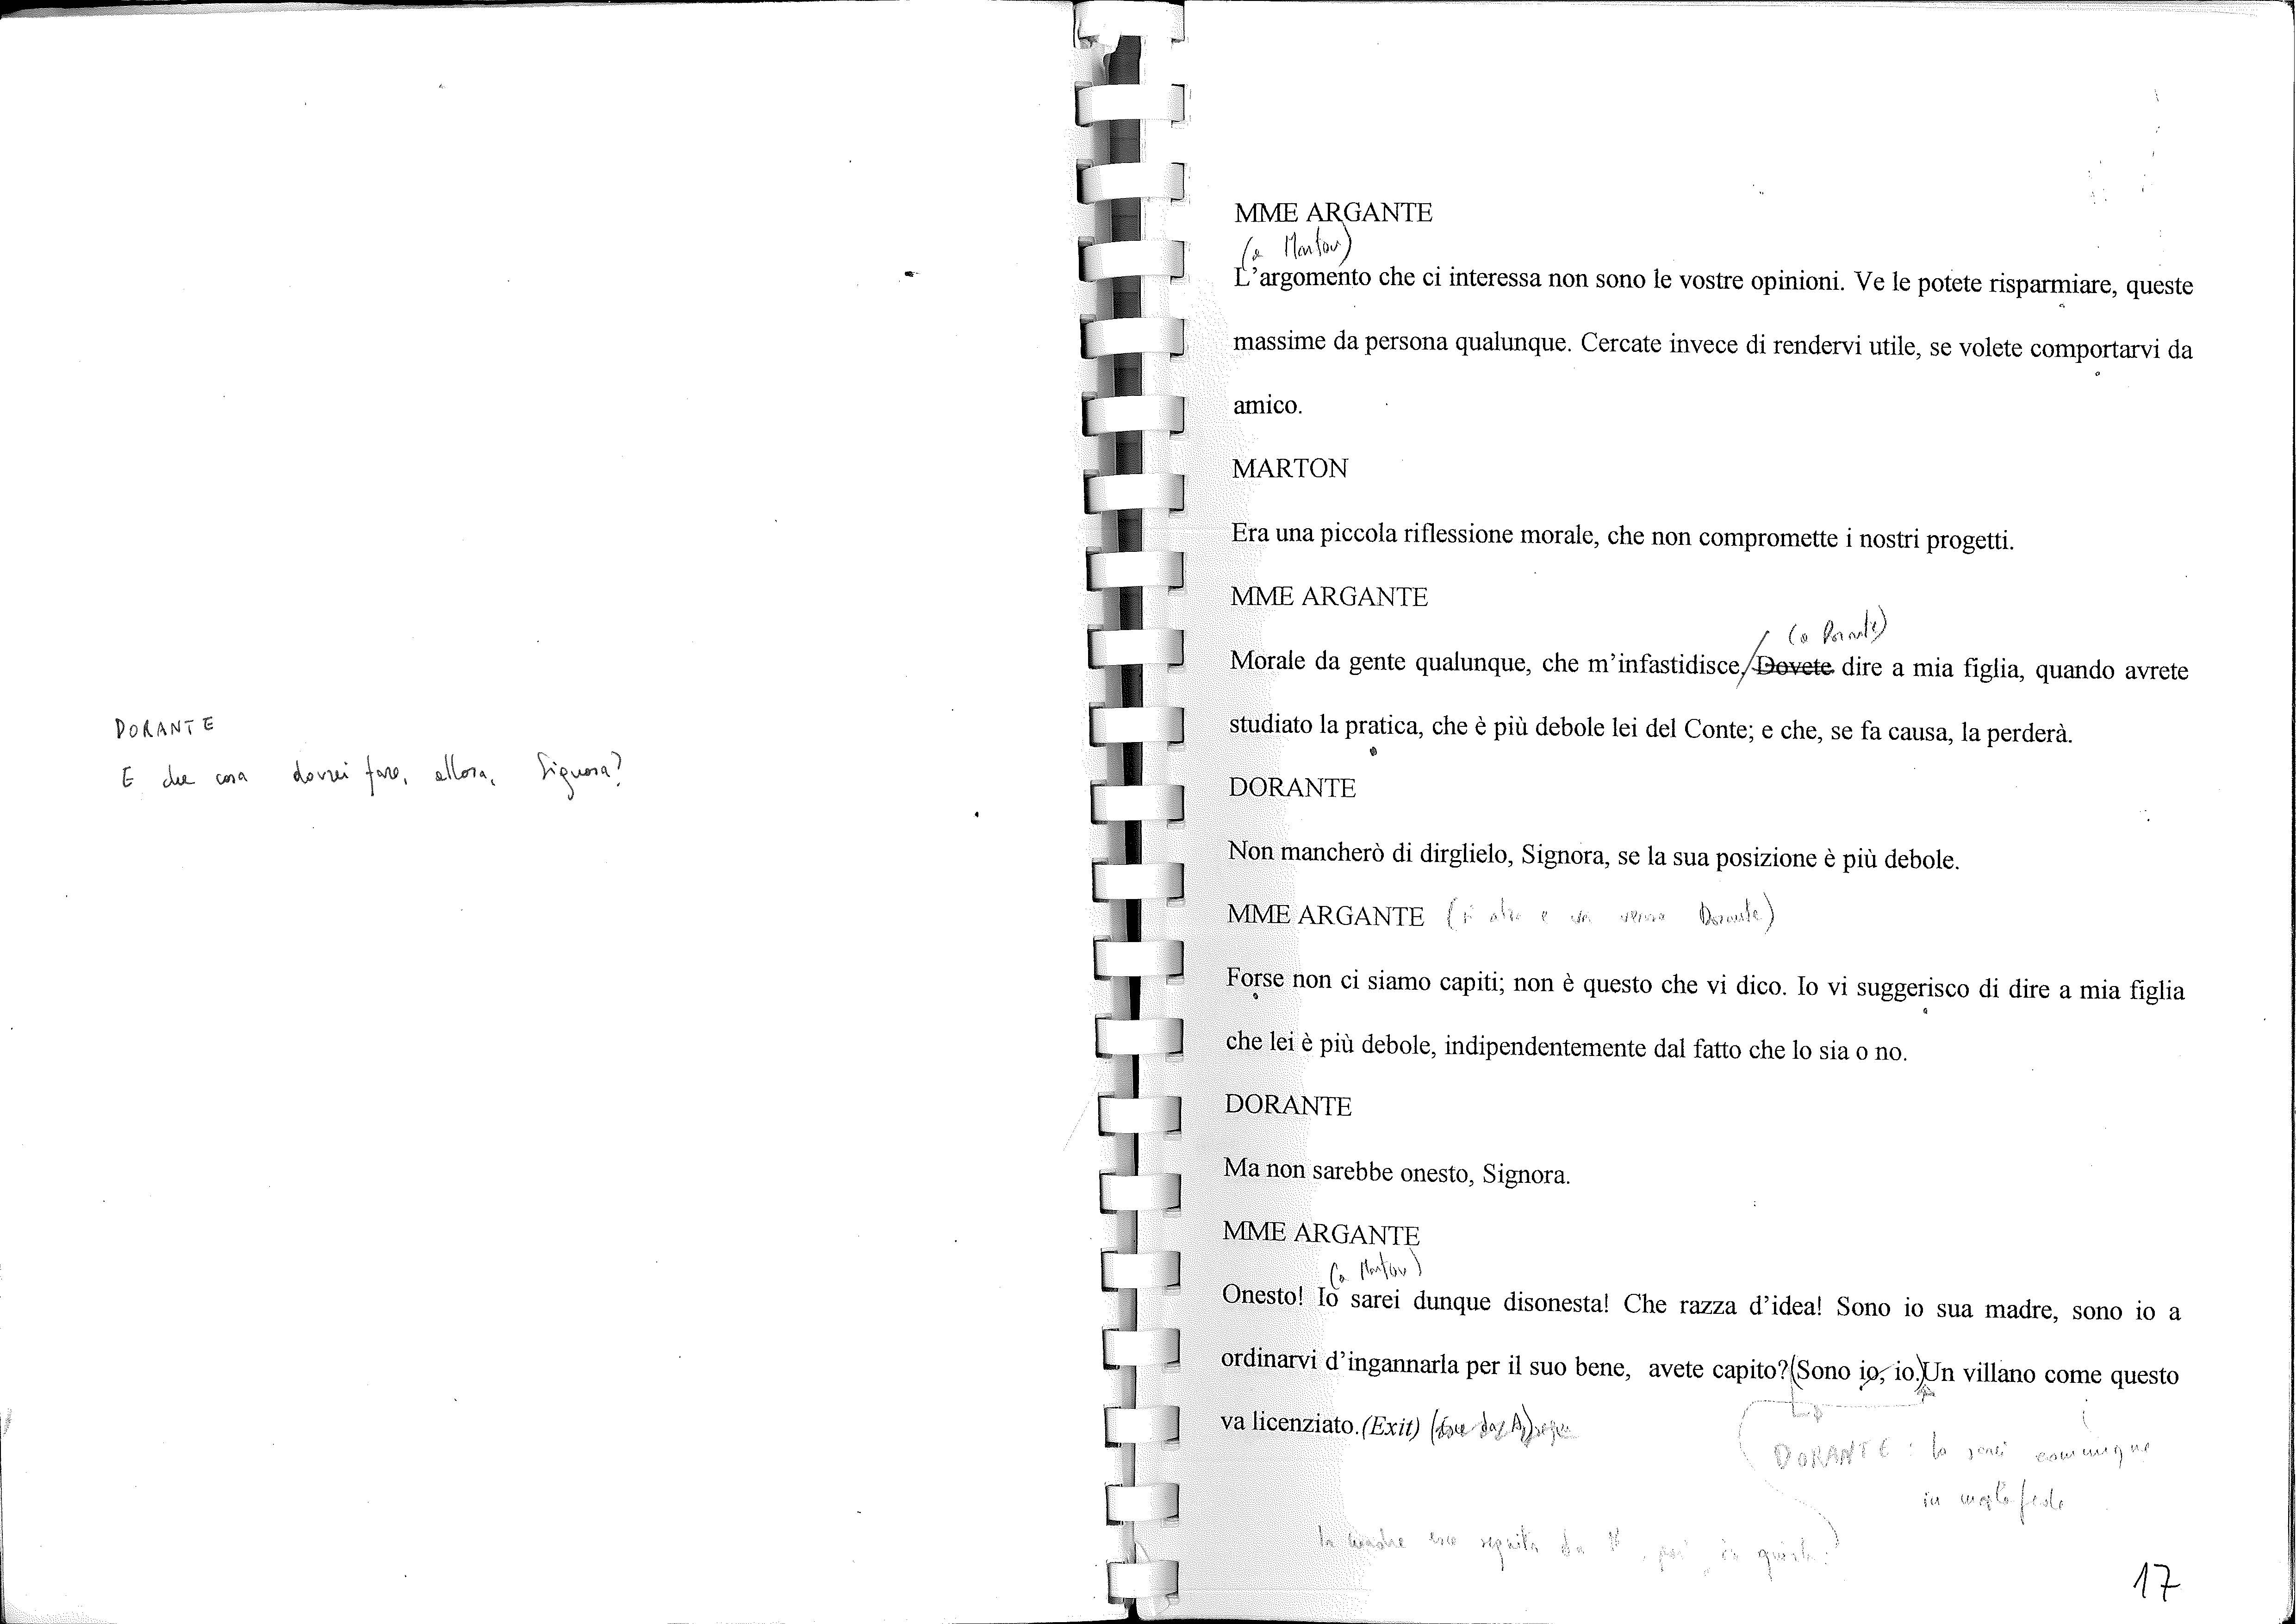 DORANTE
E che cosa dovrei fare, allora, Signora?
MME ARGANTE
(a Marton)
L'argomento che ci interessa non sono le vostre opinioni. Ve le potete risparmiare, queste
massime da persona qualunque. Cercate invece di rendervi utile, se volete comportarvi da
amico.
MARTON
Era una piccola riflessione morale, che non compromette i nostri progetti.
MME ARGANTE
(a Dorante)
Morale da gente qualunque, che m'infastidisce. Dovete dire a mia figlia, quando avrete
studiato la pratica, che è più debole lei del Conte; e che, se fa causa, la perderà.
DORANTE
Non mancherò di dirglielo, Signora, se la sua posizione è più debole.
MME ARGANTE (si alza e va verso Dorante)
Forse non ci siamo capiti; non è questo che vi dico. Io vi suggerisco di dire a mia figlia
che lei è più debole, indipendentemente dal fatto che lo sia o no.
DORANTE
Ma non sarebbe onesto, Signora.
MME ARGANTE
(a Marton)
Onesto! Io sarei dunque disonesta! Che razza d'idea! Sono io sua madre, sono io a
ordinarvi d'ingannarla per il suo bene, avete capito? (Sono io, io.) Un villano come questo
va licenziato. (Exit)
DORANTE: Io sarei comunque
in malafede
la madre esce seguita da
17